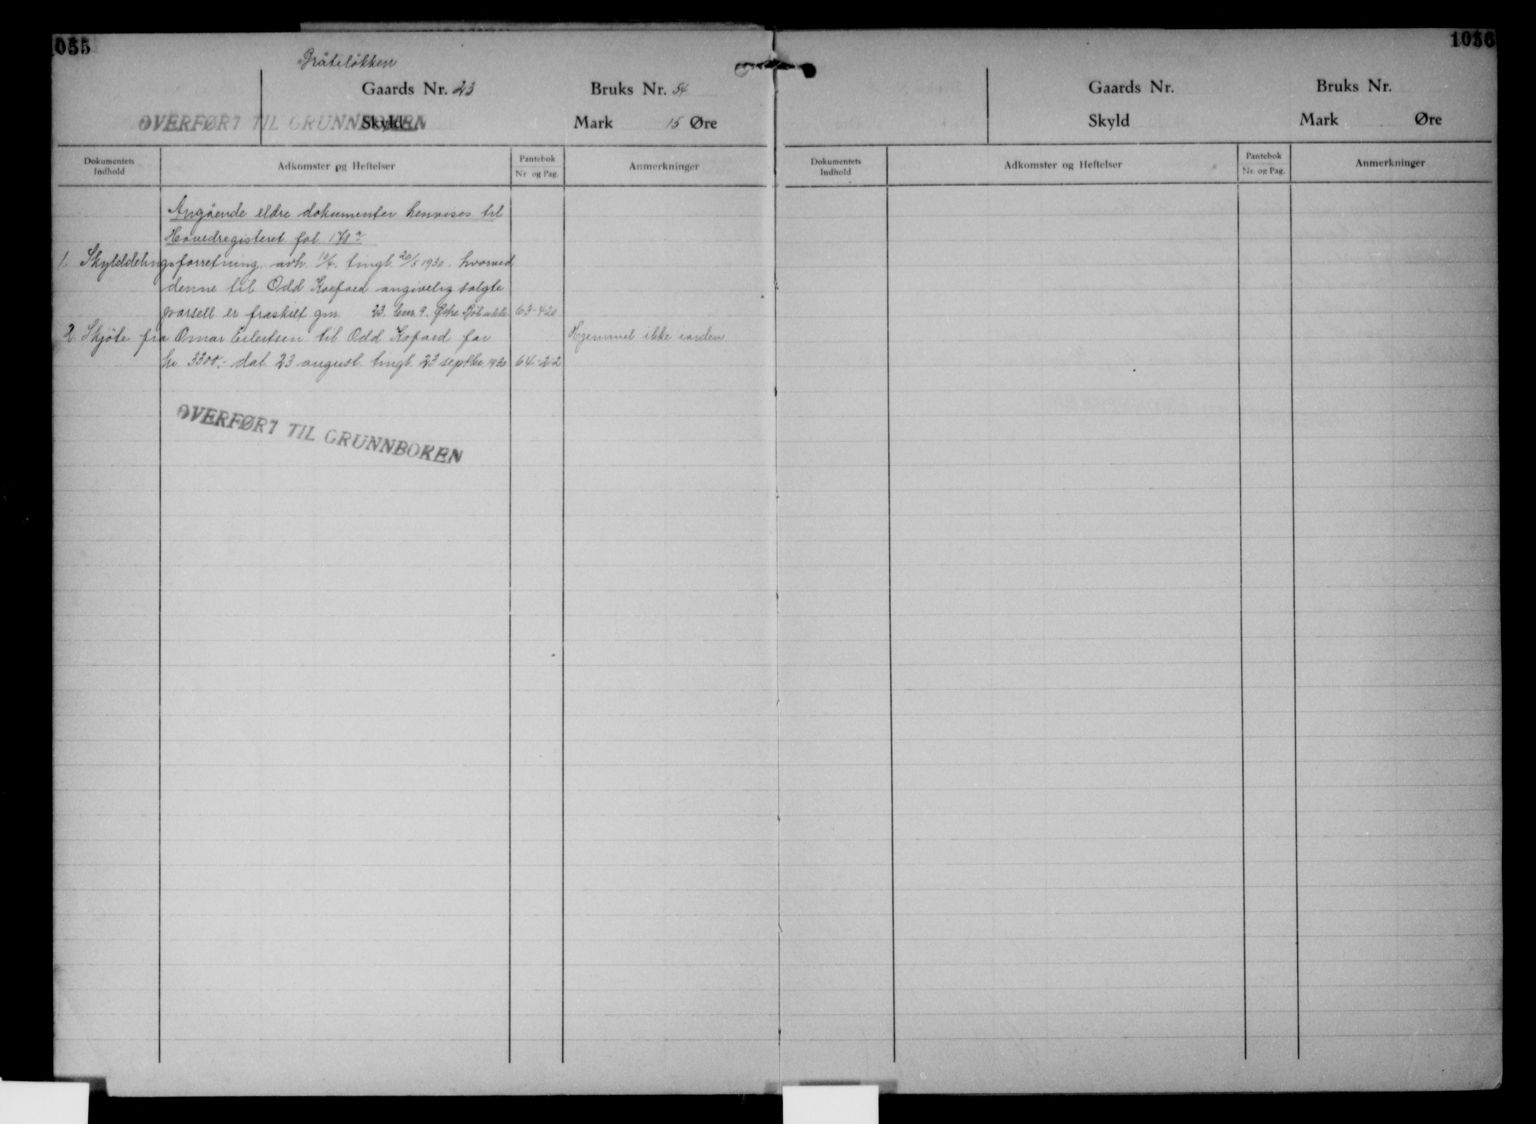 055
Bråteløkken
Gaards Nr. 23 Bruks Nr. 54
OVERFØRT TIL GRUNNBOKEN
Skyld Mark 15 Øre
Dokumentets Indhold
Adkomster og Heftelser
Pantebok Nr. og Pag.
Anmerkninger
Angående eldre dokumenter henvises til
Hovedregisteret fol.
1. Skylddelingsforretning avh. tingl. 20/5 1930 hvorved
denne til Odd Kofoed angivelig solgte
parsell er fraskilt gnr. 23. bnr. 9. Østre 63-420
2. Skjøte fra Omar Eilertsen til Odd Kofoed for Hjemmel ikke iorden
kr. 3300.- dat. 23 august tingl. 23 septbr 1930 64-22
OVERFØRT TIL GRUNNBOKEN
1056
Gaards Nr. Bruks Nr.
Skyld Mark Øre
Dokumentets Indhold
Adkomster og Heftelser
Pantebok Nr. og Pag.
Anmerkninger